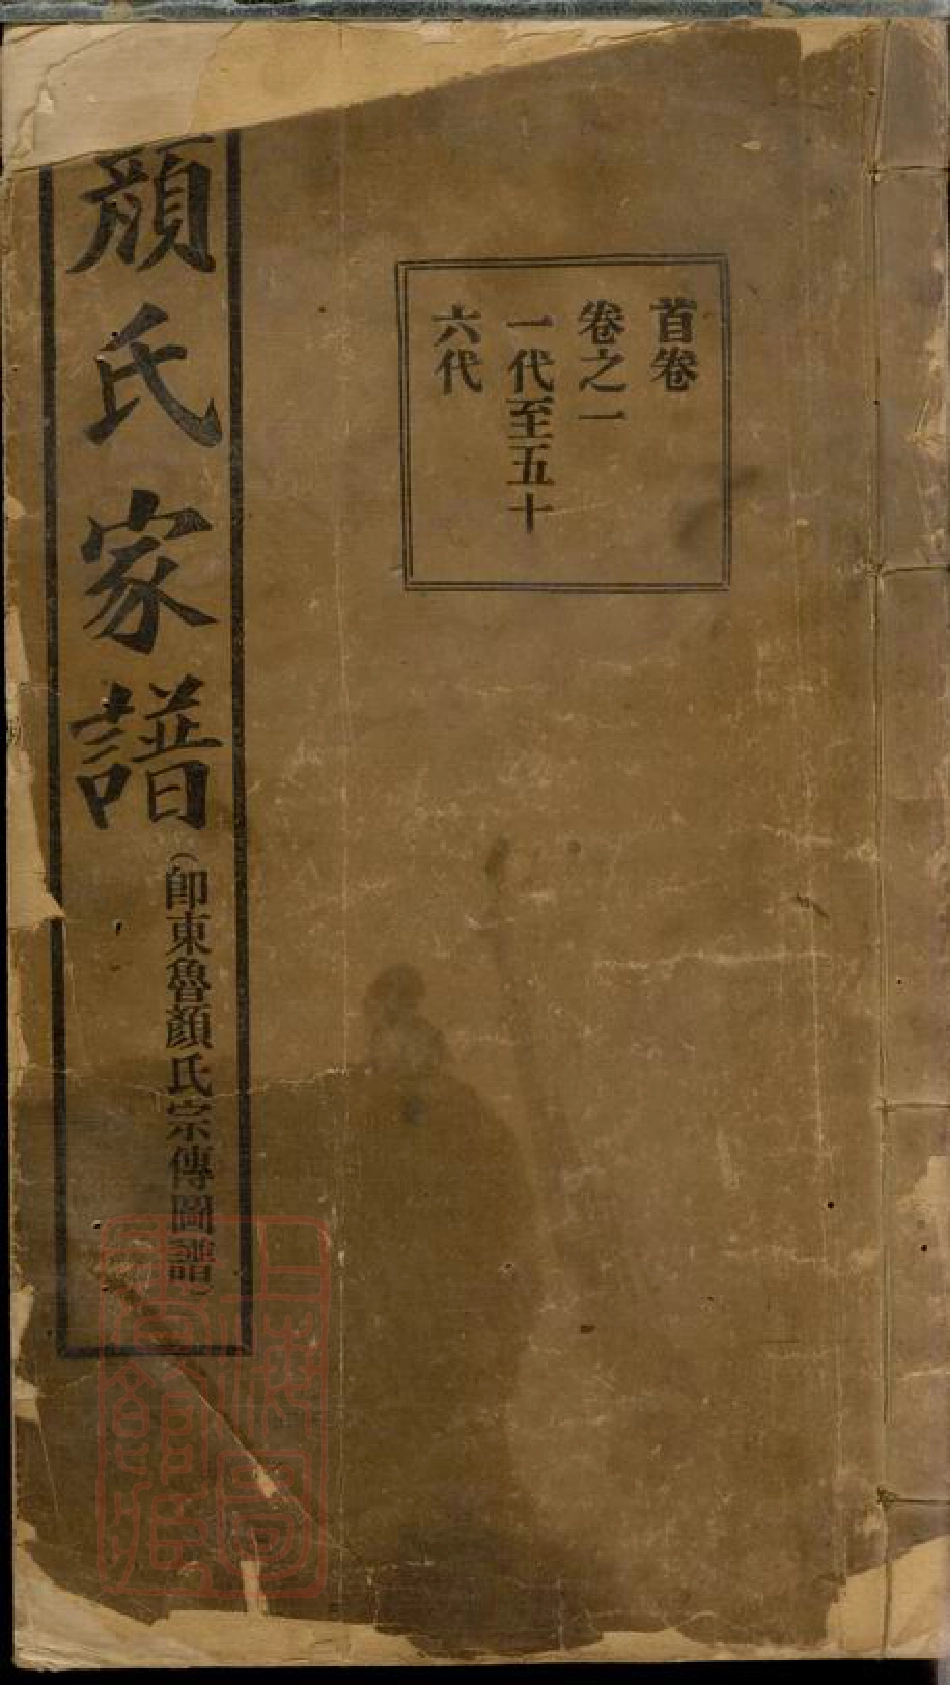 首卷
卷之一
一代至五十
六代
顏氏家譜
（卽東魯顏氏宗傳圖譜）
上海圖
書館藏